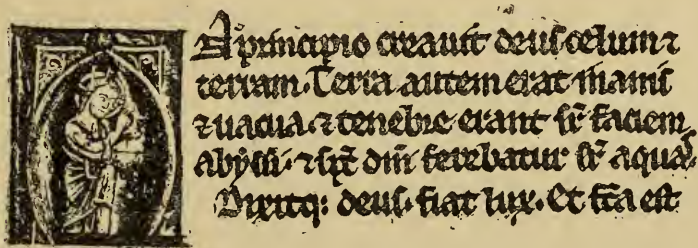 A principio creauit deus celum ⁊
terram. Terra autem erat inanis
⁊ uacua. ⁊ tenebre erant sr̄ faciem
abyssi. ⁊ sp̄c dn̄i ferebatur sr̄ aquas.
Dixitq: deus. fiat lux. Et fc̄a est